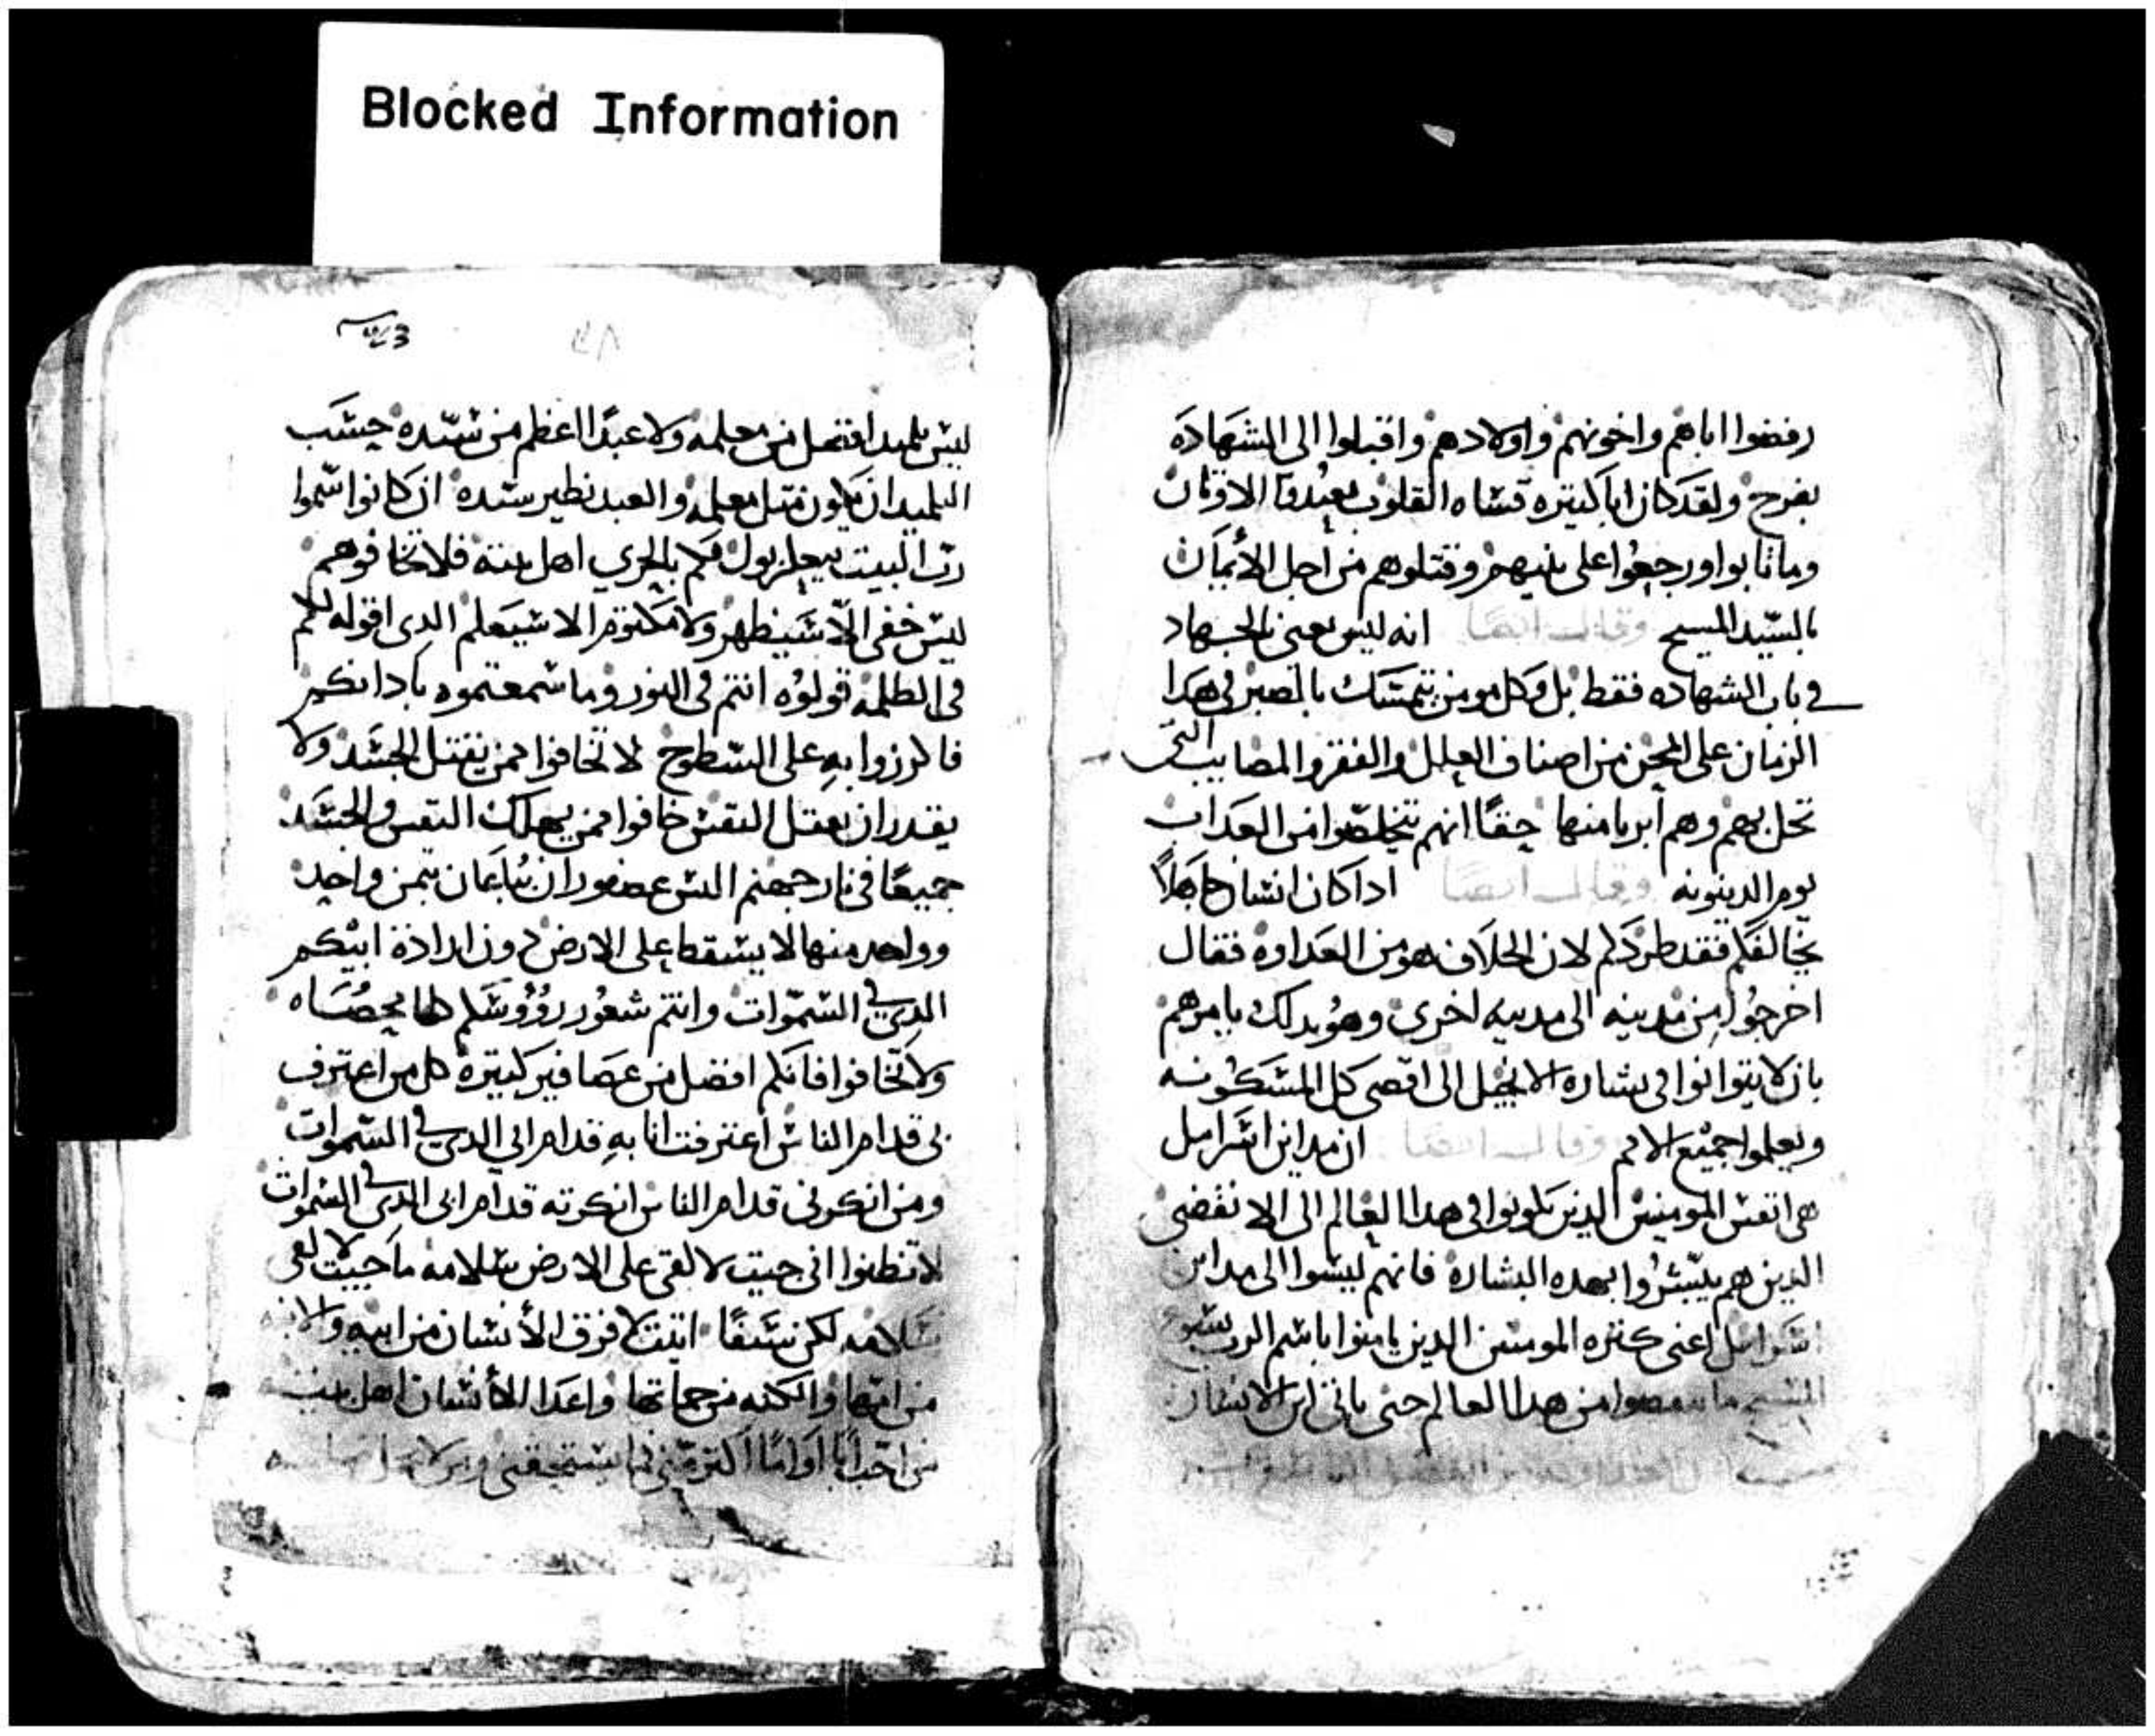 Blocked Information
رفضوا اباهم واخوتهم واولادهم واقبلوا الى الشهاده
بفرح ولقد كان ابا كتيره قساه القلوب يعبدوا الاوتان
وما تابوا ورجعوا على بنيهم وقتلوهم من اجل الأيمان
بالسيد المسيح وقال ايضا انه ليس يعنى بالجهاد
في باب الشهاده فقط بل وكل مومن يتمسك بالصبر في هدا
الزمان على المحن من اصناف العلل والفقر والمصايب التى
تحل بهم وهم ابريا منها حقًا انهم يتخلصوا من العداب
يوم الدينونه وقال ايضا ادا كان انسان جاهلاً
يخالفكم فقد طردكم لان الخلاف هو من العداوه فقال
اخرجوا من مدينه الى مدينه اخرى وهو بدلك يامرهم
بان لا يتوانوا في بشاره الانجيل الى اقصى كل المسكونه
ويعلموا جميع الامم وقال ايضا ان مداين اسرايل
هى انفس المومنين الدين يكونوا في هدا العالم الى الانقضى
الدين هم يبشروا بهده البشاره فانهم ليسوا الى مداين
اسرايل اعنى كتره المومنين الدين يامنوا باسم الرب يسوع
المسيح ما من هدا العالم حتى ياتى ابن الانسان
ليس تلميد افضل من معلمه ولا عبدًا اعظم من سيده حسب
التلميد ان يكون متل معلمه والعبد نظير سيده ان كانوا سموا
رب البيت بيعلزبول فكم بالحرى اهل بيته فلا تخافوهم
ليس خفى الا سيظهر ولا مكتوم الا سيعلم الدى اقوله لكم
فى الظلمه قولوه انتم فى النور وما سمعتموه بادانكم
فاكرزوا به على السطوح لا تخافوا ممن يقتل الجسد ولا
يقدر ان يقتل النفس خافوا ممن يهلك النفس والجسد
جميعًا فى نار جهنم اليس عصفوران يباعان بتمن واحد
وواحد منها لا يسقط على الارض دون ارادة ابيكم
الدى في السموات وانتم شعور رؤوسكم كلها محصاه
ولا تخافوا فانكم افضل من عصافير كتيره كل من اعترف
بى قدام الناس اعترفت انا به قدام ابى الدى في السموات
ومن انكرنى قدام الناس انكرته قدام ابى الدى في السموات
لا تظنوا انى جيت لالقى على الارض سلامه ما جيت لالقى
سلامه لكن سيفًا اتيت لافرق الأنسان من ابيه والابنه
من امها والكنه من حماتها واعدا الأنسان اهل بيته
من احب ابًا او امًا اكتر منى فما يستحقنى